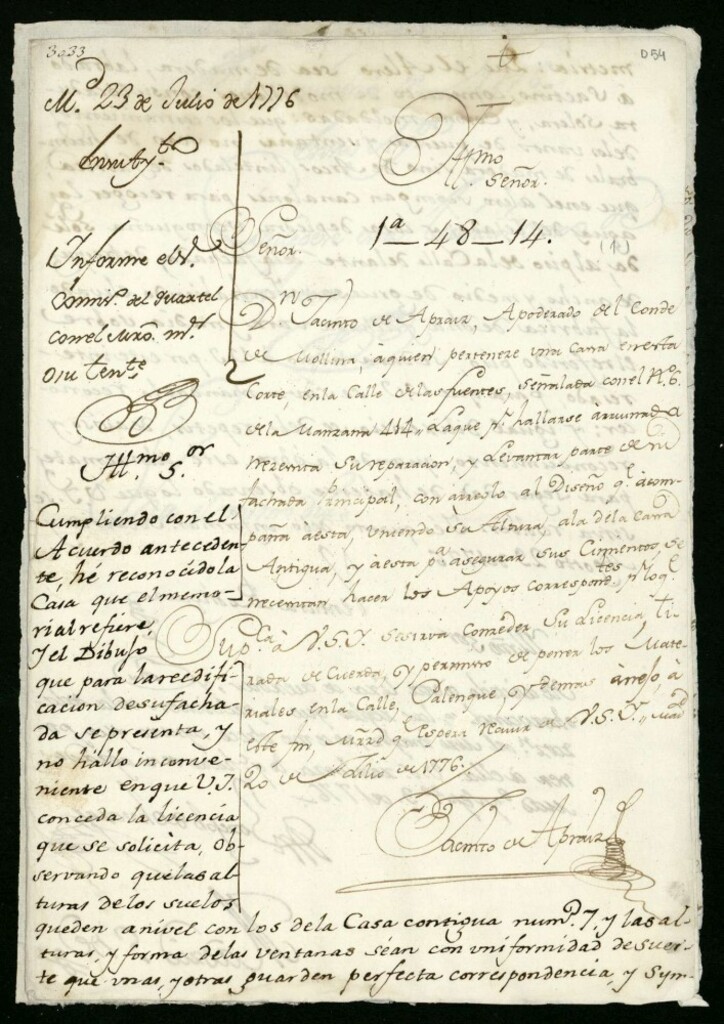 3033
D54
M.d 23 de Julio de 1776
En su Ay.to
Informe el S.r
Comis.o del Quartel
con el Mro. m.or
o su then.te
Ill.mo S.or
Cumpliendo con el
Acuerdo anteceden-
te, hé reconocido la
Casa que el memo-
rial refiere,
y el Dibujo
que para la reedifi-
cacion de su facha-
da se presenta, y
no hallo inconve-
niente en que V.I.
conceda la licencia
que se solicita, ob-
servando que las al-
turas de los suelos
queden a nivel con los de la Casa contigua num.º 7. y las al-
turas, y forma de las ventanas sean con uniformidad de suer-
te que unas, y otras guarden perfecta correspondencia, y Sym-
Illmo
Señor.
1ª-48-14.
(1)
Señor.
D.n Jacinto de Apraiz, Apoderado del Conde
de Mollina, à quien pertenece una Casa en esta
Corte, en la Calle de las fuentes, señalada con el N.º 6.
de la Manzana 414, La que p.r hallarse arruinada
necesita su reparacion, y Levantar parte de su
fachada Principal, con arreglo al Diseño q.e acom-
paña à esta, uniendo su Altura, a la de la Casa
Antigua, y à esta p.a asegurar sus Cimientos, se
necesitan hacer los Apoyos correspond.tes p.r lo q.e
Sup.ca à V.S.Y. se sirva conceder su Licencia, ti-
rada de Cuerda, y permiso de poner los Mate-
riales, en la Calle, Palenque, y demas anejo, à
este fin, Mrd q.e espera recivir de V.S.Y. Mad.d
20 de Julio de 1776.
Jacinto de Apraiz